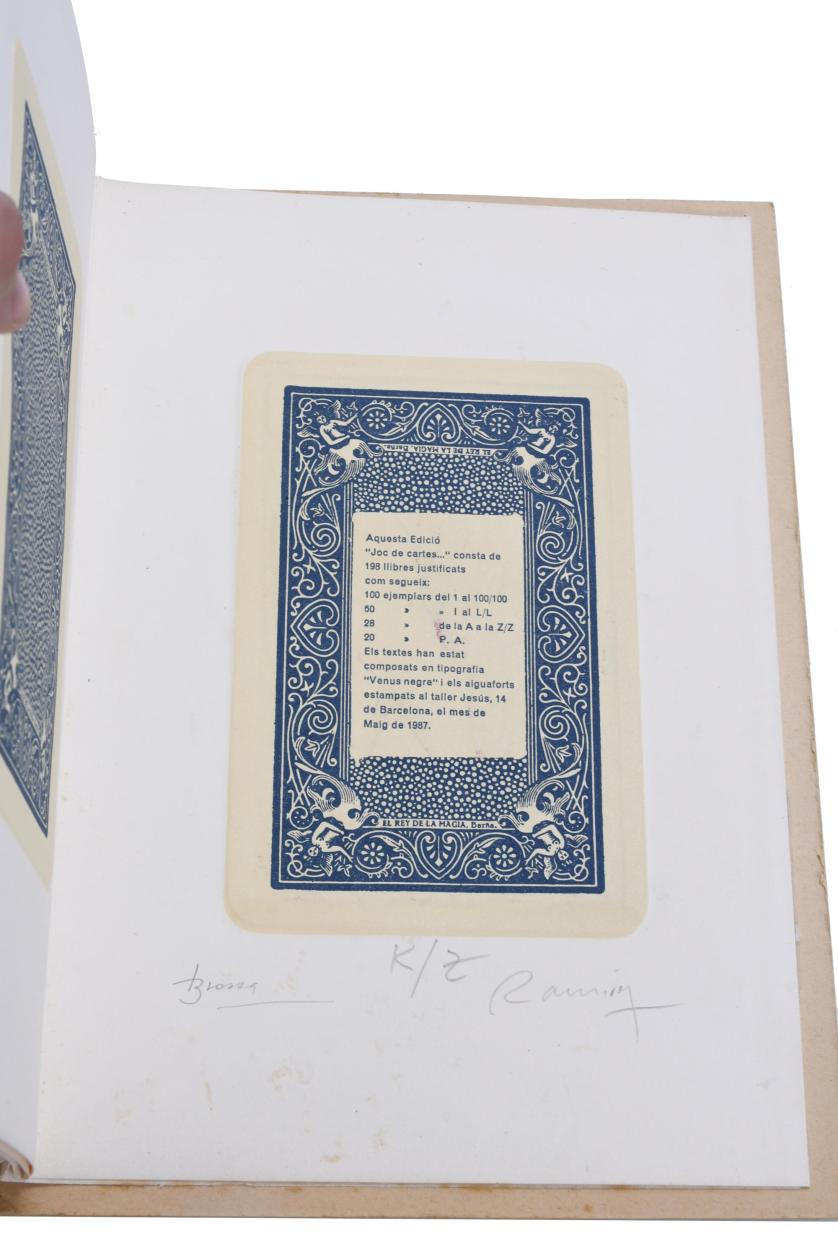 EL REY DE LA MAGIA, Barña.
Aquesta Edició
"Joc de cartes..." consta de
198 llibres justificats
com segueix:
100 ejemplars del 1 al 100/100
50 » » I al L/L
28 » de la A a la Z/Z
20 » P. A.
Els textes han estat
composats en tipografia
"Venus negre" i els aiguaforts
estampats al taller Jesús, 14
de Barcelona, el mes de
Maig de 1987.
EL REY DE LA MAGIA, Barña.
K/Z
Brossa